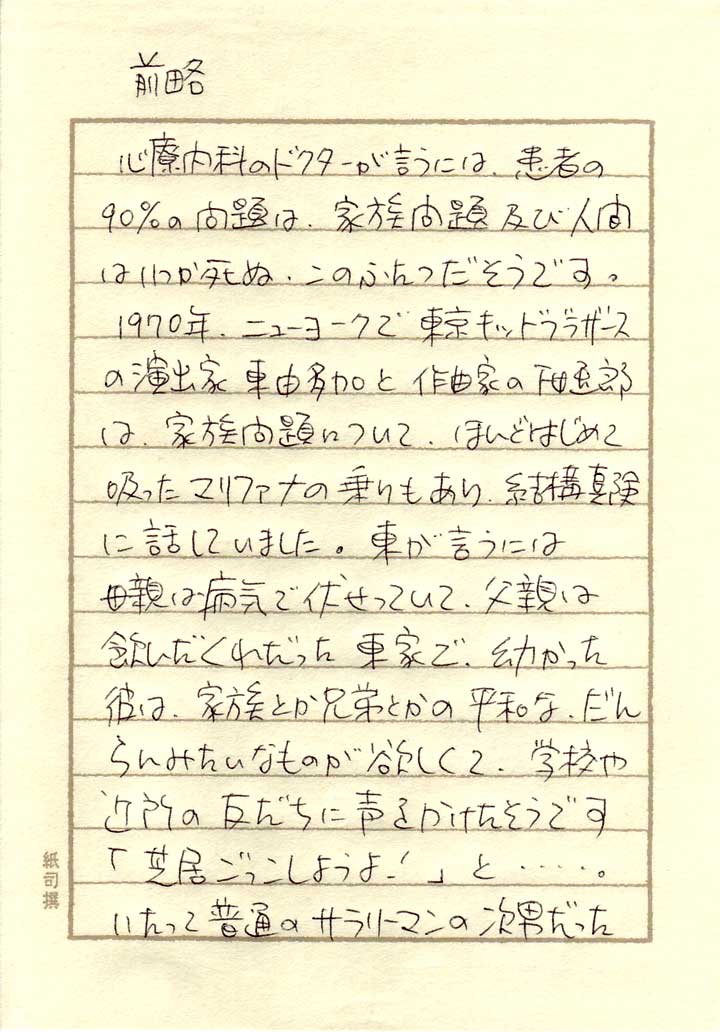 前略
心療内科のドクターが言うには、患者の
90%の問題は、家族問題及び人間
はいつか死ぬ、このふたつだそうです。
1970年、ニューヨークで東京キッドブラザース
の演出家東由多加と作曲家の下田逸郎
は、家族問題について、ほとんどはじめて
吸ったマリファナの乗りもあり、結構真険
に話していました。東が言うには
母親は病気で伏せっていて、父親は
飲んだくれだった東家で、幼かった
彼は、家族とか兄弟とかの平和な、だん
らんみたいなものが欲しくて、学校や
近所の友だちに声をかけたそうです
「芝居ごっこしようよ！」と・・・・・。
いたって普通のサラリーマンの次男だった
紙司撰